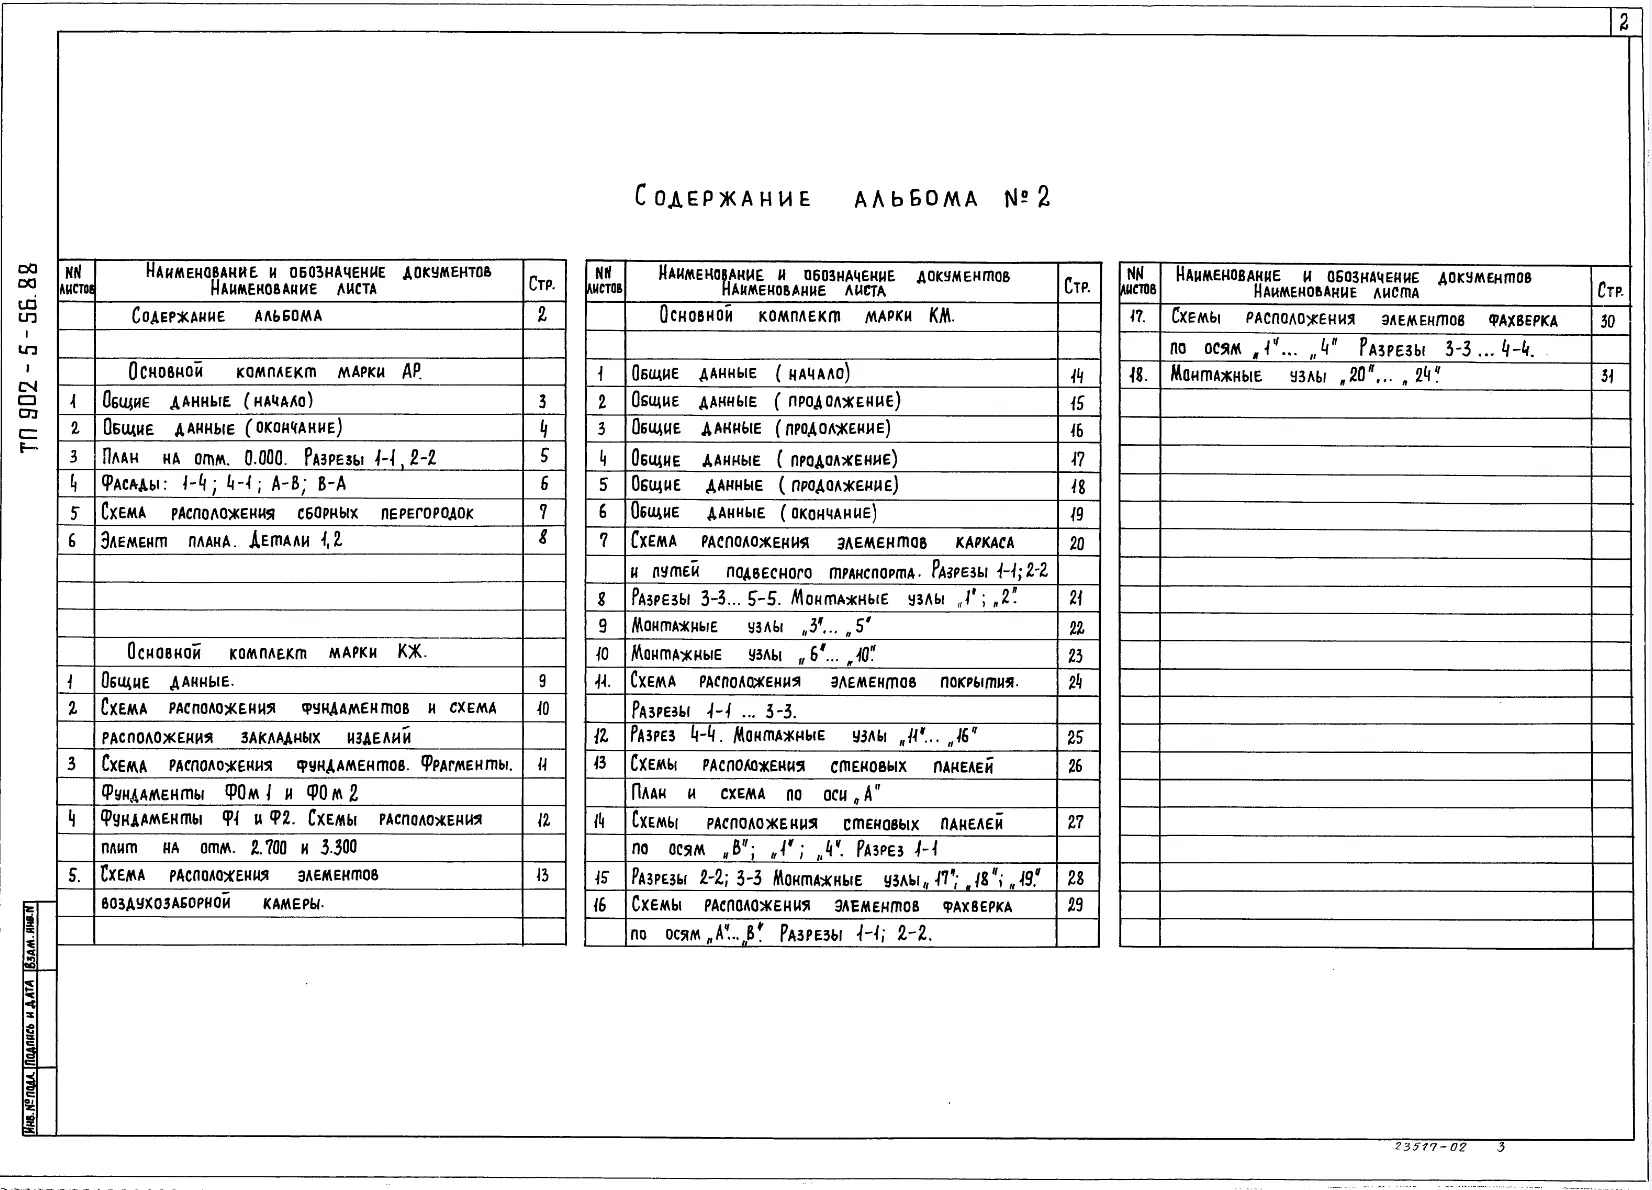 2
Содержание альбома №2
ТП 902-5-56.88
NN листов Наименование и обозначение документов Наименование листа Стр.
Содержание альбома 2
Основной комплект марки АР.
1 Общие данные (начало) 3
2 Общие данные (окончание) 4
3 План на отм. 0.000. Разрезы 1-1, 2-2 5
4 Фасады: 1-4; 4-1; А-В; В-А 6
5 Схема расположения сборных перегородок 7
6 Элемент плана. Детали 1,2 8
Основной комплект марки КЖ.
1 Общие данные. 9
2 Схема расположения фундаментов и схема 10
расположения закладных изделий
3 Схема расположения фундаментов. Фрагменты. 11
Фундаменты ФОм1 и ФОм2
4 Фундаменты Ф1 и Ф2. Схемы расположения 12
плит на отм. 2.700 и 3.300
5. Схема расположения элементов 13
воздухозаборной камеры.
NN листов Наименование и обозначение документов Наименование листа Стр.
Основной комплект марки КМ.
1 Общие данные (начало) 14
2 Общие данные (продолжение) 15
3 Общие данные (продолжение) 16
4 Общие данные (продолжение) 17
5 Общие данные (продолжение) 18
6 Общие данные (окончание) 19
7 Схема расположения элементов каркаса 20
и путей подвесного транспорта. Разрезы 1-1; 2-2
8 Разрезы 3-3... 5-5. Монтажные узлы „1"; „2". 21
9 Монтажные узлы „3"... „5" 22
10 Монтажные узлы „6"... „10". 23
11. Схема расположения элементов покрытия. 24
Разрезы 1-1 ... 3-3.
12 Разрез 4-4. Монтажные узлы „11"... „16" 25
13 Схемы расположения стеновых панелей 26
План и схема по оси „А"
14 Схемы расположения стеновых панелей 27
по осям „В"; „1"; „4". Разрез 1-1
15 Разрезы 2-2; 3-3 Монтажные узлы „17"; „18"; „19". 28
16 Схемы расположения элементов фахверка 29
по осям „А"...„В". Разрезы 1-1; 2-2.
NN листов Наименование и обозначение документов Наименование листа Стр.
17. Схемы расположения элементов фахверка 30
по осям „1"... „4" Разрезы 3-3 ... 4-4.
18. Монтажные узлы „20"... „24". 31
Инв.№подл. Подпись и дата Взам.инв.N
23517-02 3